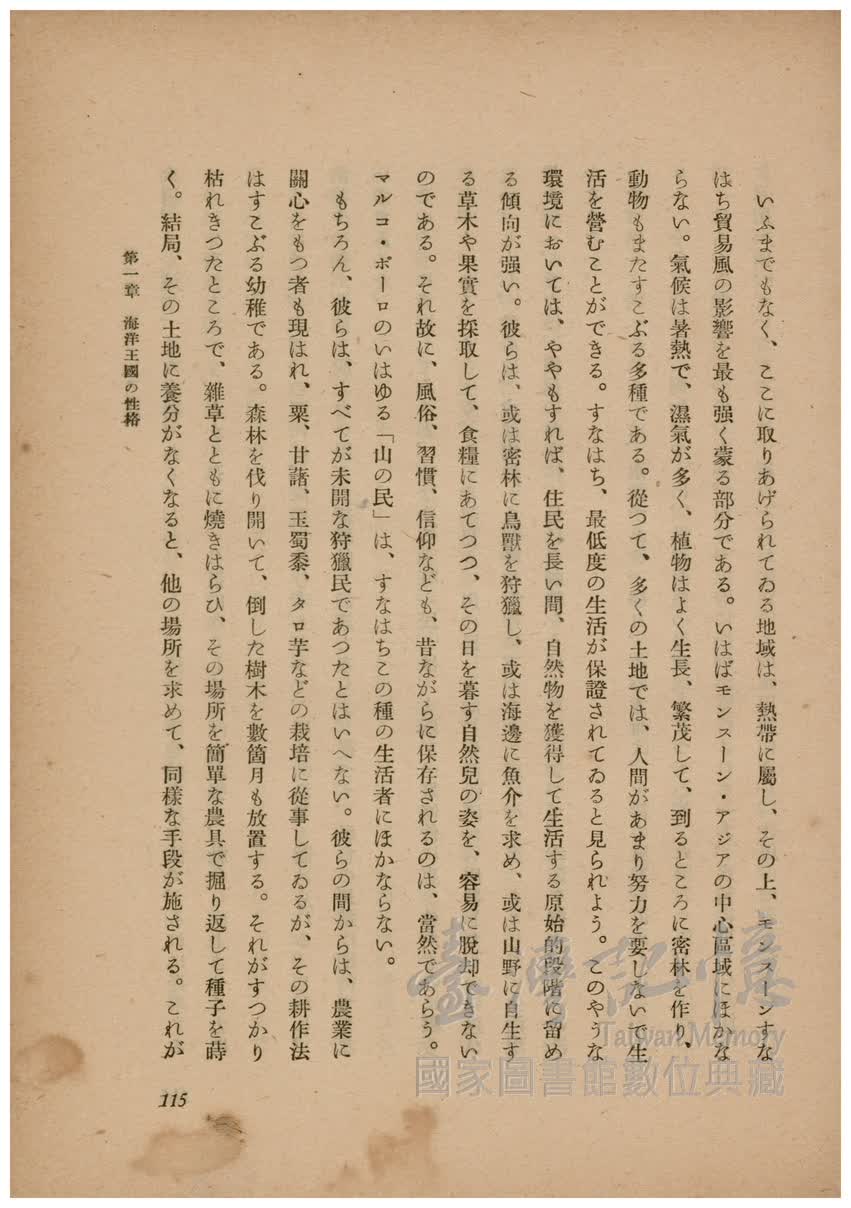 いふまでもなく、ここに取りあげられてゐる地域は、熱帶に屬し、その上、モンスーンすな
はち貿易風の影響を最も强く蒙る部分である。いはばモンスーン・アジアの中心區域にほかな
らない。氣候は暑熱で、濕氣が多く、植物はよく生長、繁茂して、到るところに密林を作り、
動物もまたすこぶる多種である。從つて、多くの土地では、人間があまり努力を要しないで生
活を營むことができる。すなはち、最低度の生活が保證されてゐると見られよう。このやうな
環境においては、ややもすれば、住民を長い間、自然物を獲得して生活する原始的段階に留め
る傾向が强い。彼らは、或は密林に鳥獸を狩獵し、或は海邊に魚介を求め、或は山野に自生す
る草木や果實を採取して、食糧にあてつつ、その日を暮す自然兒の姿を、容易に脫却できない
のである。それ故に、風俗、習慣、信仰なども、昔ながらに保存されるのは、當然であらう。
マルコ・ポーロのいはゆる「山の民」は、すなはちこの種の生活者にほかならない。
もちろん、彼らは、すべてが未開な狩獵民であつたとはいへない。彼らの間からは、農業に
關心をもつ者も現はれ、粟、甘藷、玉蜀黍、タロ芋などの栽培に從事してゐるが、その耕作法
はすこぶる幼稚である。森林を伐り開いて、倒した樹木を數箇月も放置する。それがすつかり
枯れきつたところで、雜草とともに燒きはらひ、その場所を簡單な農具で掘り返して種子を蒔
く。結局、その土地に養分がなくなると、他の場所を求めて、同樣な手段が施される。これが
第一章 海洋王國の性格
115
臺灣記憶
Taiwan Memory
國家圖書館數位典藏